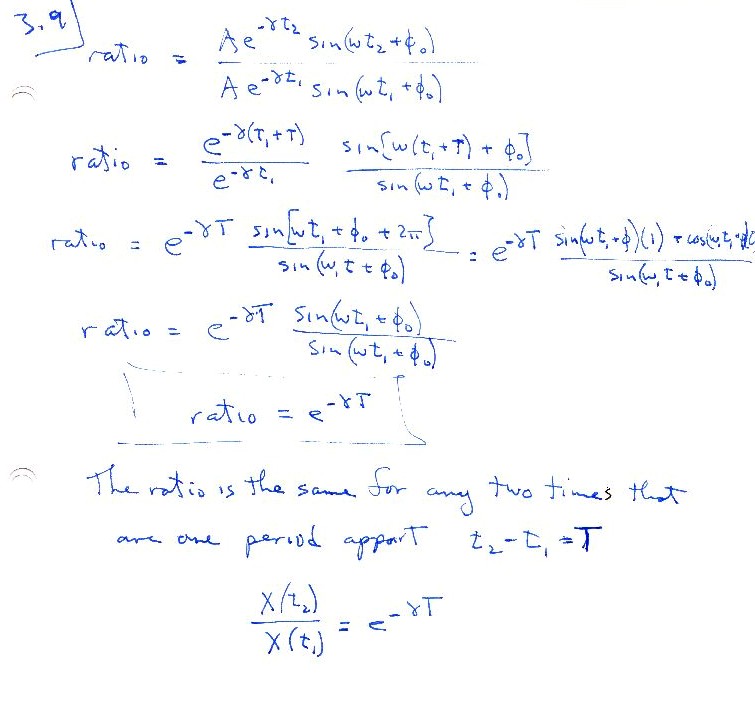 3.9
ratio = Ae^-γt₂ sin(ωt₂+ϕ₀) / Ae^-γt₁ sin(ωt₁+ϕ₀)
ratio = e^-γ(t₁+T) / e^-γt₁ sin[ω(t₁+T) + ϕ₀] / sin(ωt₁+ϕ₀)
ratio = e^-γT sin[ωt₁+ϕ₀+2π] / sin(ω₁t+ϕ₀) = e^-γT sin(ωt₁+ϕ)(1) + cos(ωt₁+ϕ / sin(ω₁t+ϕ₀)
ratio = e^-γT sin(ωt₁+ϕ₀) / sin(ωt₁+ϕ₀)
ratio = e^-γT
The ratio is the same for any two times that
are one period appart t₂-t₁=T
X(t₂) / X(t₁) = e^-γT